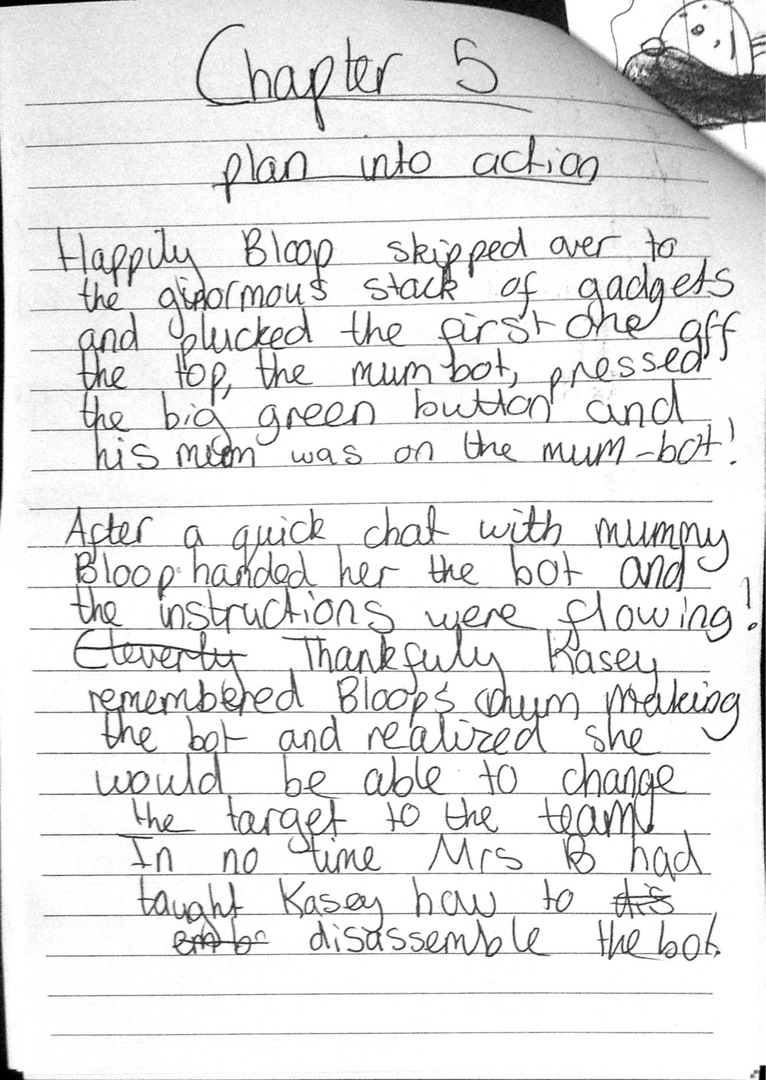 Chapter 5
plan into action
Happily Bloop skipped over to
the ginormous stack of gadgets
and plucked the first one off
the top, the mum bot, pressed
the big green button and
his mum was on the mum-bot!
After a quick chat with mummy
Bloop handed her the bot and
the instructions were flowing!
Cleverly Thankfully Kasey
remembered Bloops mum making
the bot and realized she
would be able to change
the target to the team.
In no time Mrs B had
taught Kasey how to dis
disassemble the bot.